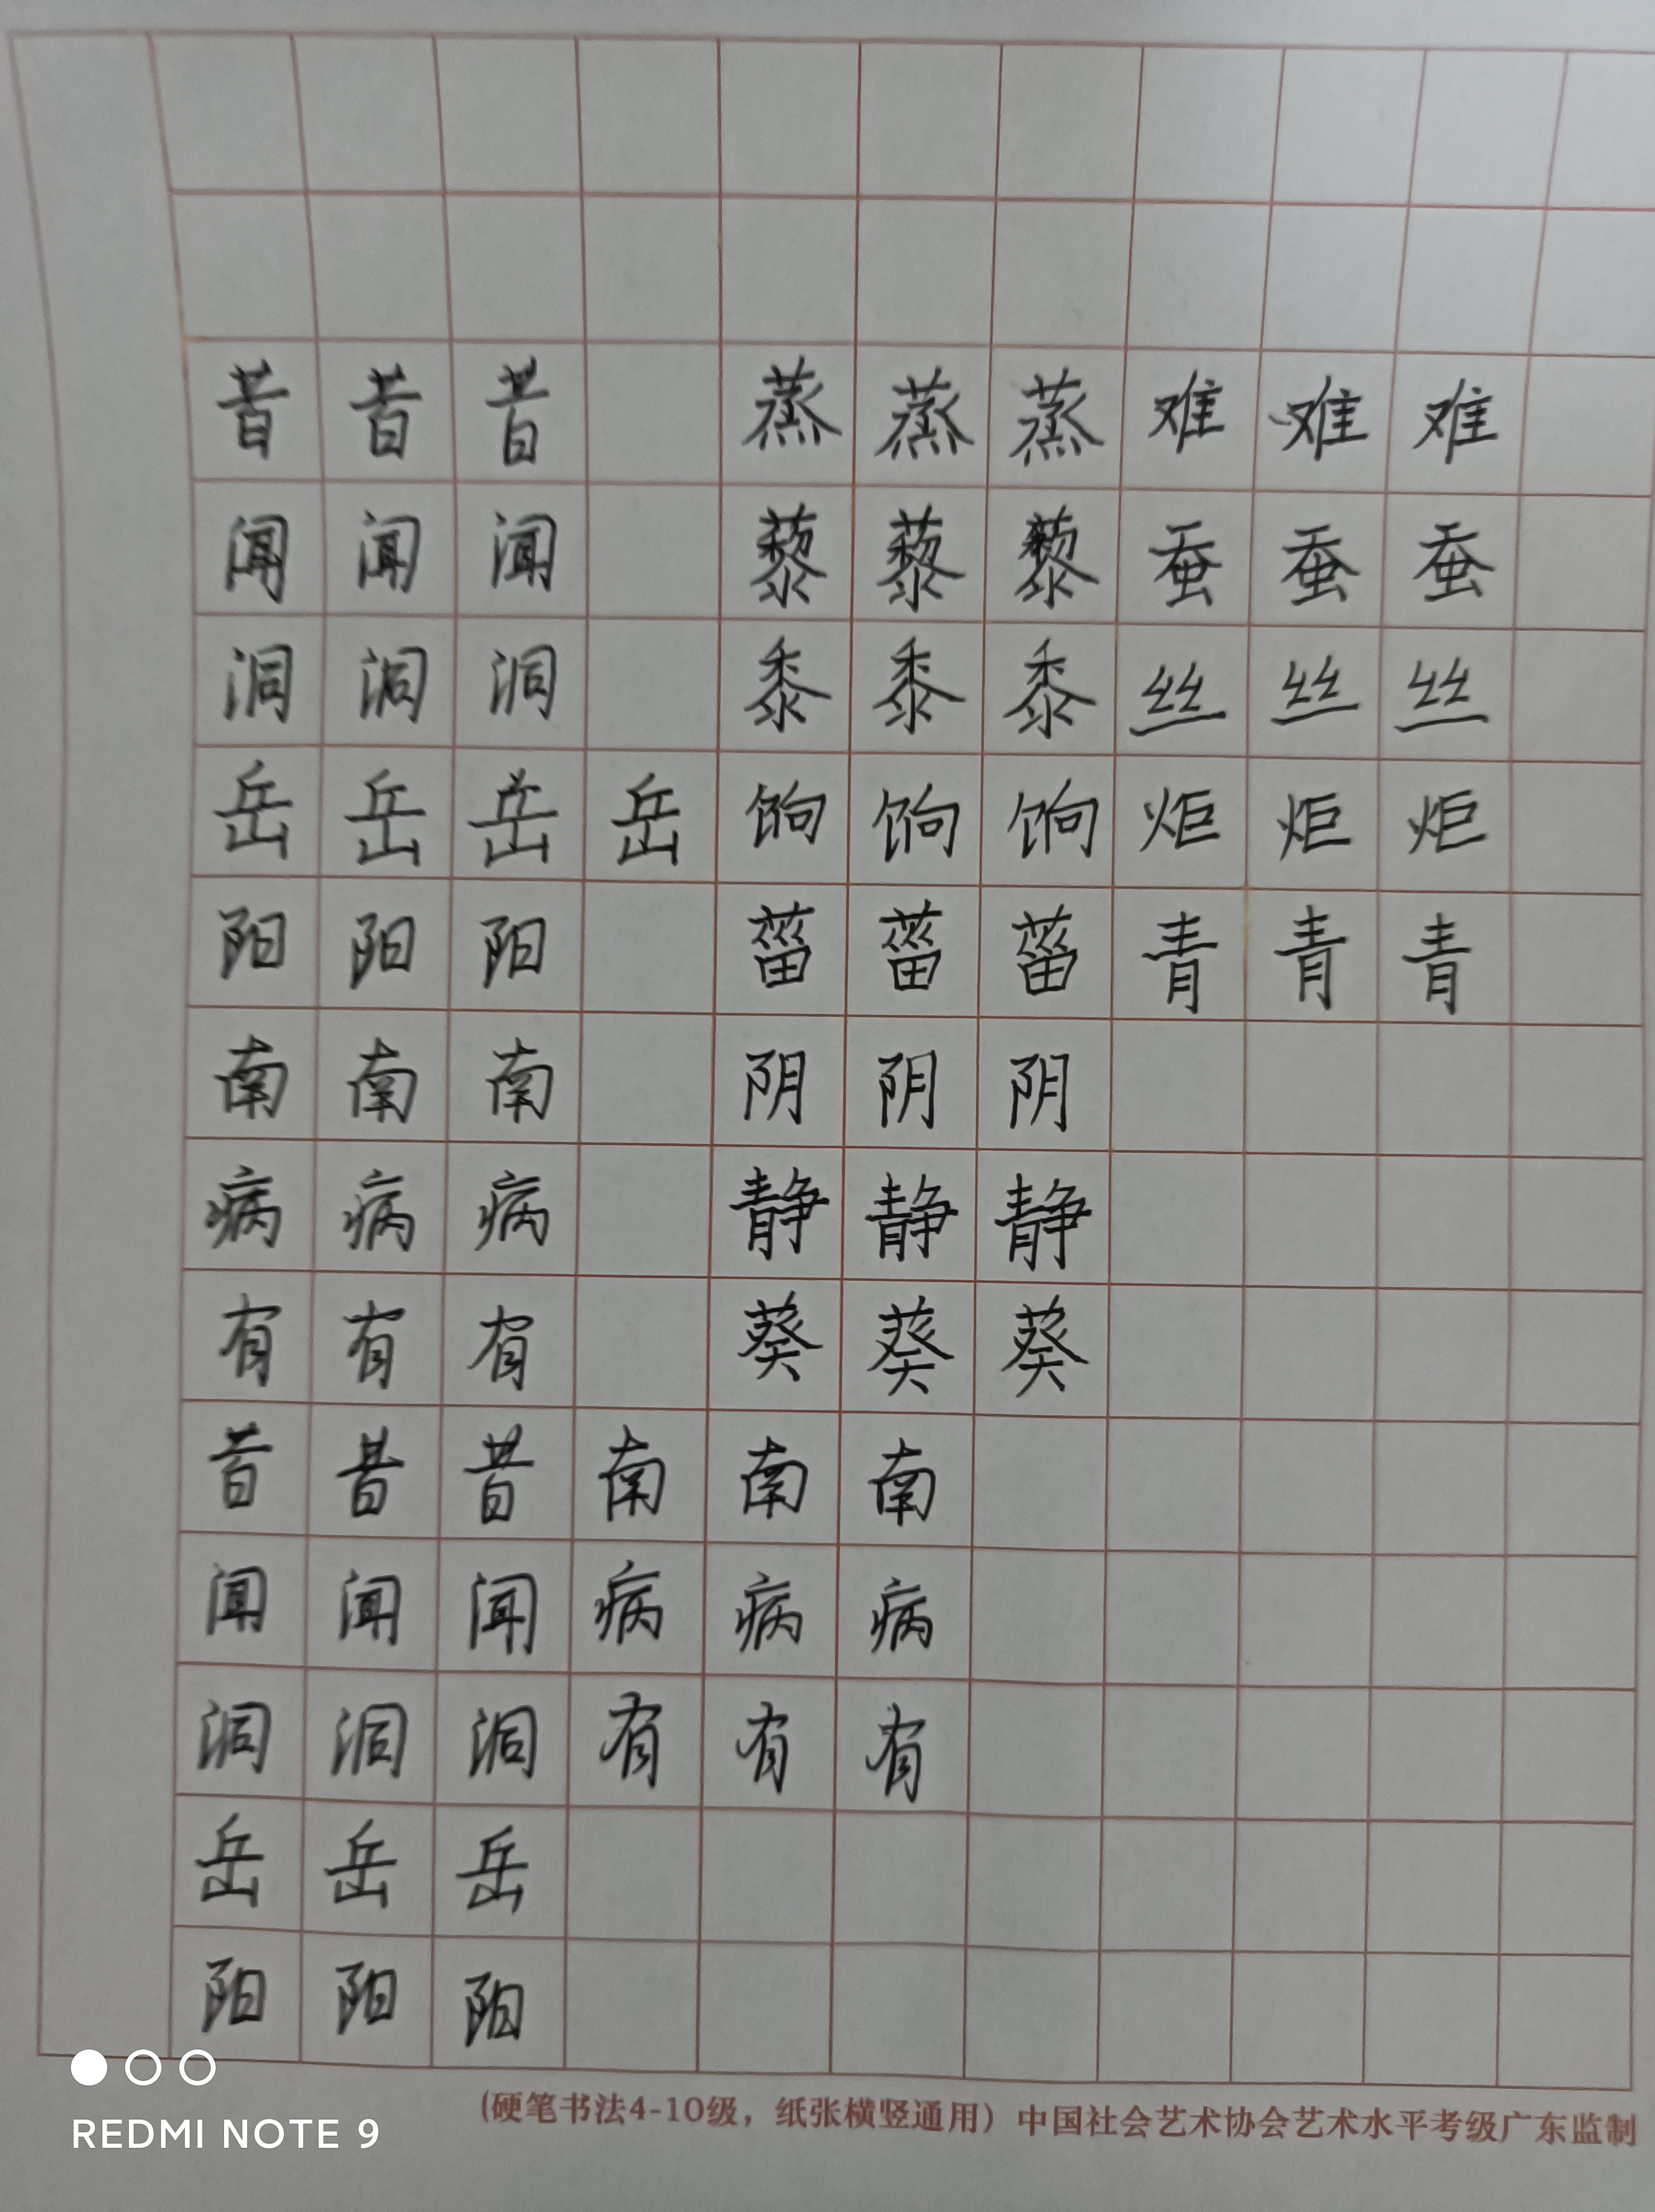 昔昔昔蒸蒸蒸难难难
闻闻闻藜藜藜蚕蚕蚕
洞洞洞黍黍黍丝丝丝
岳岳岳岳饷饷饷炬炬炬
阳阳阳菑菑菑青青青
南南南阴阴阴
病病病静静静
有有有葵葵葵
昔昔昔南南南
闻闻闻病病病
洞洞洞有有有
岳岳岳
阳阳阳
(硬笔书法4-10级，纸张横竖通用）中国社会艺术协会艺术水平考级广东监制
REDMI NOTE 9